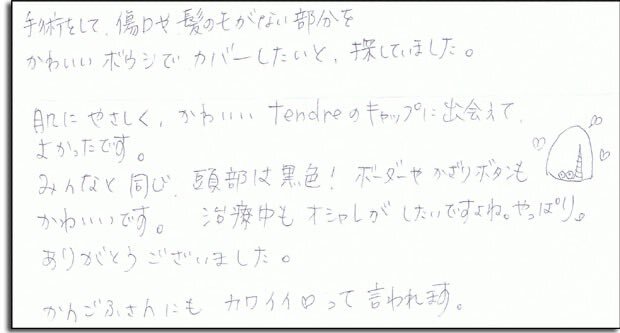 手術をして、傷口や髪のモがない部分を
かわいいボウシでカバーしたいと、探していました。
肌にやさしく、かわいいtendreのキャップに出会えて、
よかったです。
みんなと同じ、頭部は黒色！ボーダーやかざりボタンも
かわいいです。治療中もオシャレがしたいですよね。やっぱり。
ありがとうございました。
かんごふさんにもカワイイ♡って言われます。